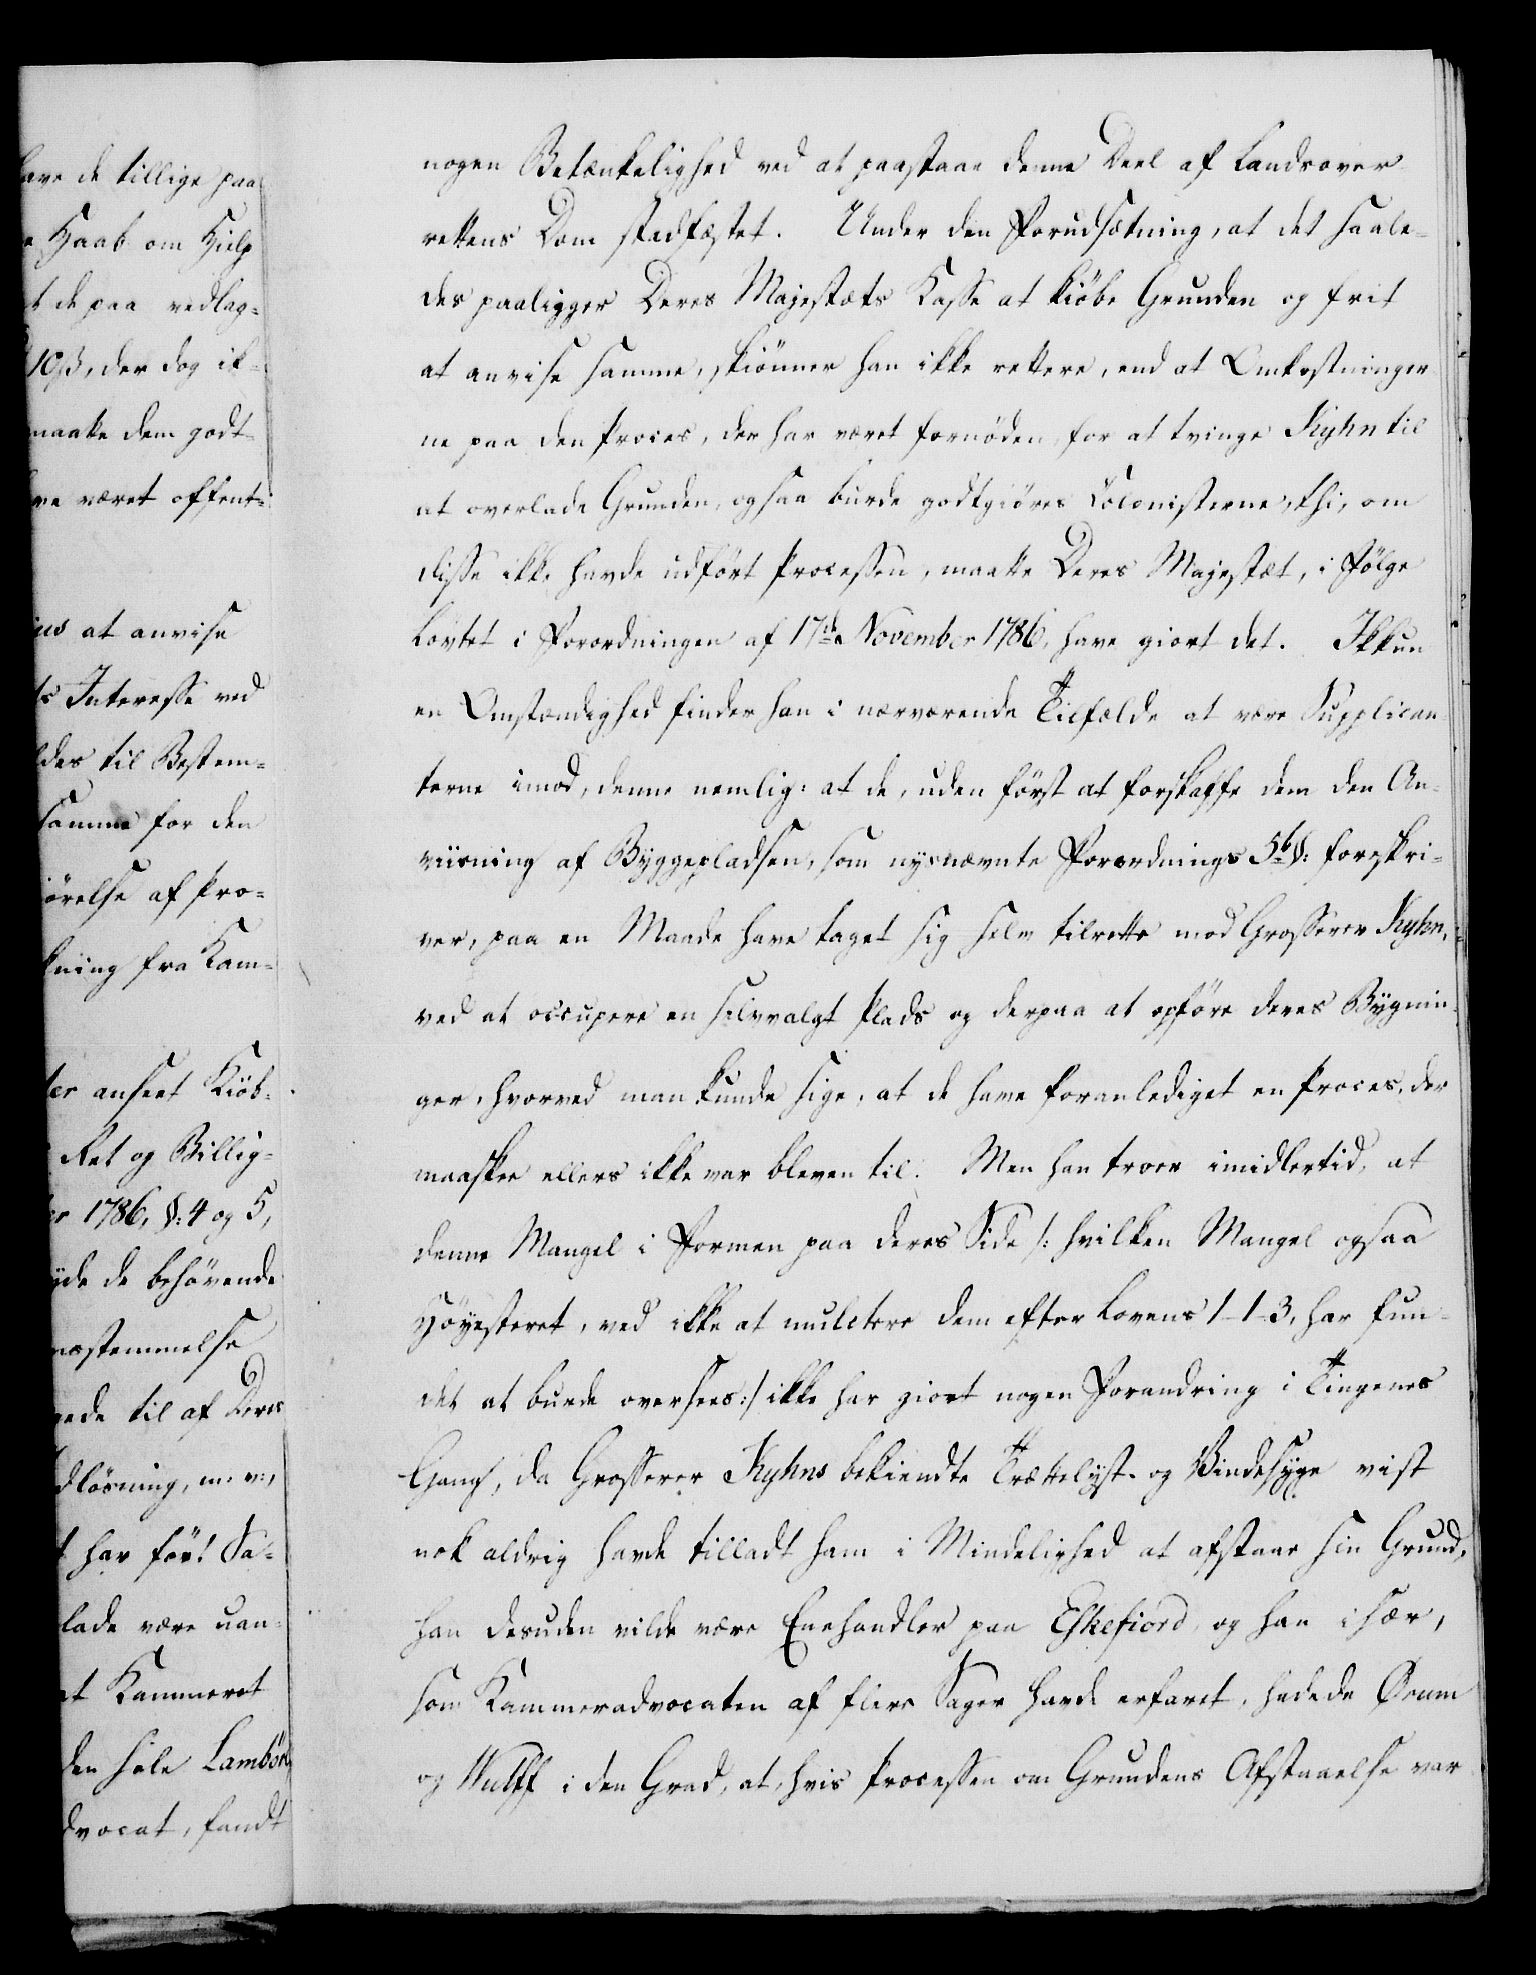 have de tillige paa
Haab om Hielp
t de paa vedlag-
10 ß, der dog ik-
maatte dem godt-
ve været offent-
at anvise
ts Interesse ved
ldes til Bestem-
samme for den
iörelse af Pro-
kning fra Kam-
ter anseet Kiöb-
Ret og Billig-
er 1786, §: 4 og 5,
yde de behövende
nestemmelse
ede til af Deres
dlösning, m: v:,
t har för! Sa-
lade være uan-
at Kammeret
den hele Lambön,
dvocat, fandt
nogen Betænkelighed ved at paastaae denne Deel af Landsover-
rettens Dom stadfæstet. Under den Forudsætning, at det saale-
des paaligger Deres Majestæts Kasse at kiöbe Grunden og frit
at anvise samme, skiönner han ikke rettere, end at Omkostninger-
ne paa den Proces, der har været fornöden for at tvinge Kyhn til
at overlade Grunden, ogsaa burde godtgiöres Colonisterne, thi, om
disse ikke havde udfört Processen, maatte Deres Majestæt, i Fölge
Lövtet i Forordningen af 17de November 1786, have giort det. Ikkun
en Omstændighed finder han i nærværende Tilfælde at være Supplican-
terne imod, denne nemlig: at de, uden först at forskaffe dem den An-
viisning af Byggepladsen, som nysnævnte Forordnings 5te §: foreskri-
ver, paa en Maade have taget sig selv tilrette mod Grosserer Kyhn,
ved at occupere en selvvalgt Plads og derpaa at opföre deres Bygnin-
ger, hvorved man kunde sige, at de have foranlediget en Proces, der
maaskee ellers ikke var bleven til. Men han troer imidlertid, at
denne Mangel i Formen paa deres Side /: hvilken Mangel ogsaa
Höyesteret, ved ikke at mulctere dem efter Lovens 1-1-3, har fun-
det at burde oversees:/ ikke har giort nogen Forandring i Tingenes
Gang, da Grosserer Kyhns bekiendte Trættelyst- og Vindesyge vist
nok aldrig havde tilladt ham i Mindelighed at afstaae sin Grund,
han desuden vilde være Enehandler paa Eskefiord, og han især,
som Kammeradvocaten af flere Sager havde erfaret, hadede Örum
og Wulff i den Grad, at, hvis Processen om Grundens Afstaaelse var